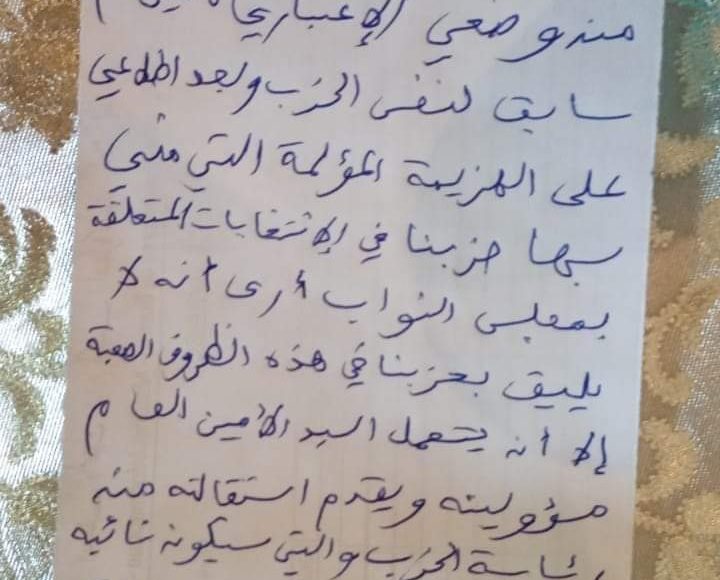 من وضعي الإعتباري كأمين عام
سابق لنفس الحزب وبعد اطلاعي
على الهزيمة المؤلمة التي مني
بها حزبنا في الإنتخابات المتعلقة
بمجلس النواب أرى أنه لا
يليق بحزبنا في هذه الظروف الصعبة
إلا أن يتحمل السيد الأمين العام
مسؤوليته ويقدم استقالته من
رئاسة الحزب والتي سيكون نائبه